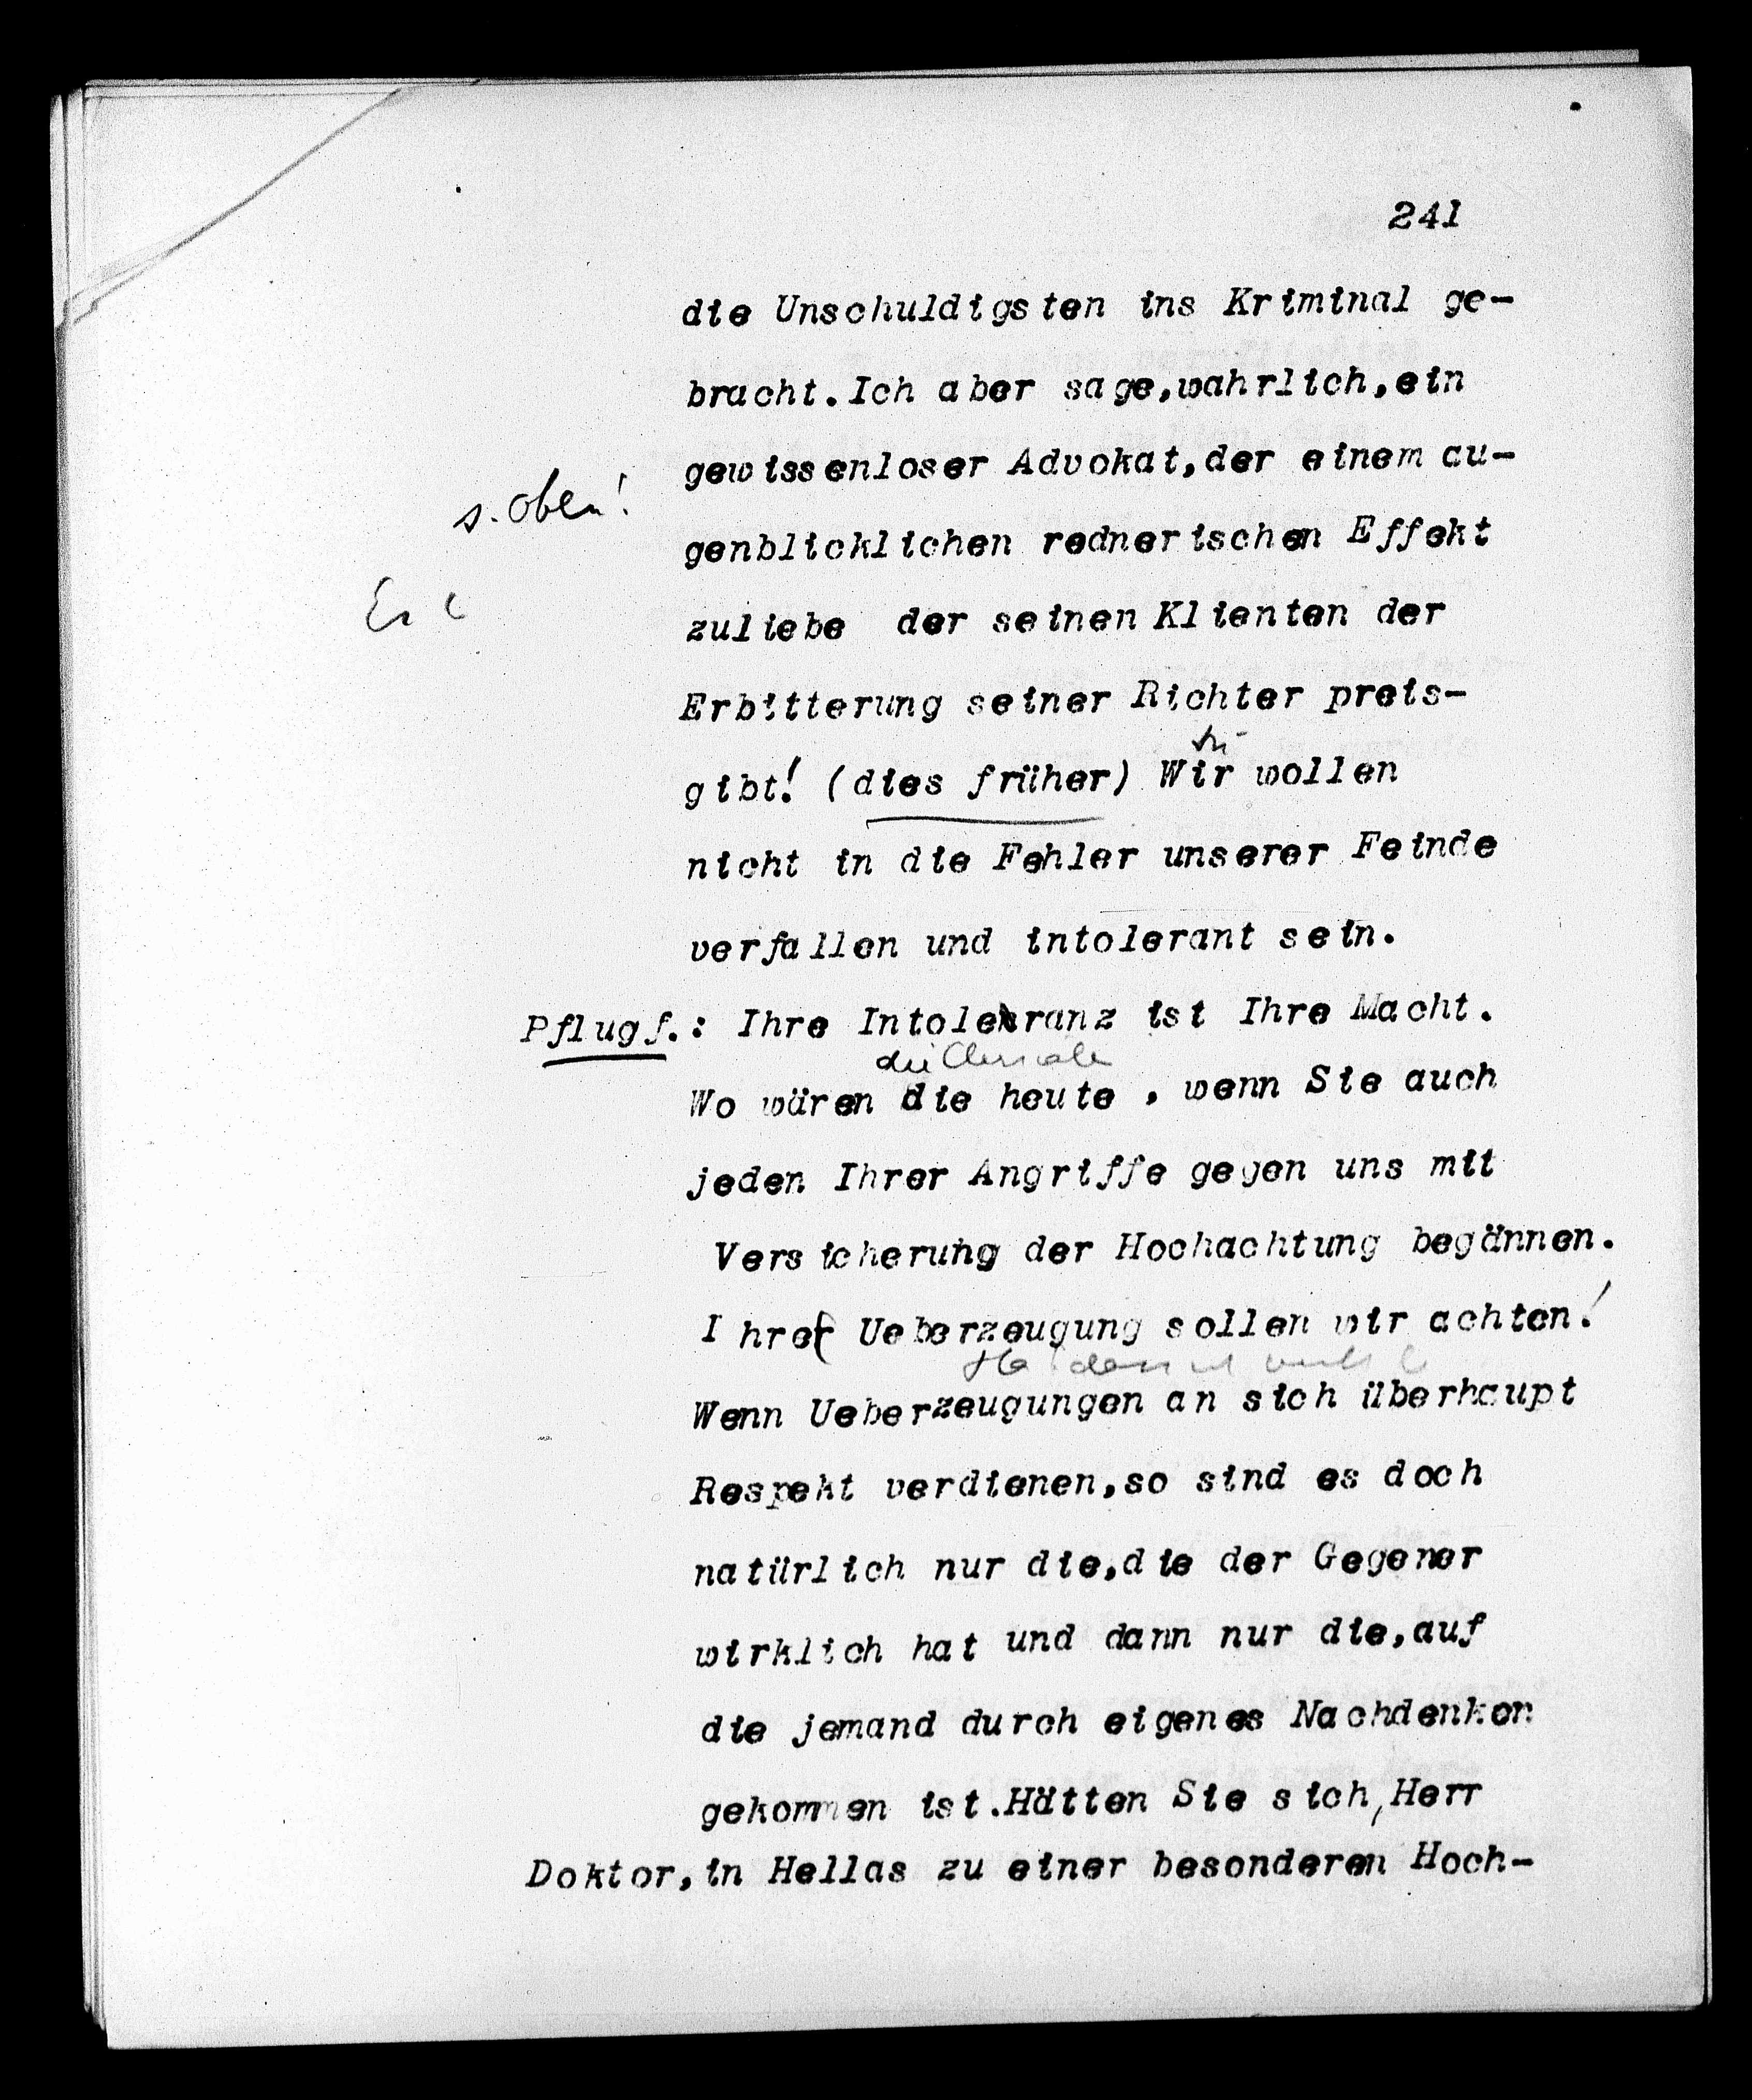 241
die Unschuldigsten ins Kriminal ge-
bracht. Ich aber sage, wahrlich, ein
gewissenloser Advokat, der einem au-
s. oben!
genblicklichen rednerischen Effekt
zuliebe der seinen Klienten der
Erbitterung seiner Richter preis-
gibt! (dies früher) Wir wollen
nicht in die Fehler unserer Feinde
verfallen und intolerant sein.
Pflugf.: Ihre Intoleranz ist Ihre Macht.
die
Wo wären die heute, wenn Sie auch
jeden Ihrer Angriffe gegen uns mit
Versicherung der Hochachtung begännen.
Ihre Ueberzeugung sollen wir achten!
Wenn Ueberzeugungen an sich überhaupt
Respekt verdienen, so sind es doch
natürlich nur die, die der Gegener
wirklich hat und dann nur die, auf
die jemand durch eigenes Nachdenken
gekommen ist. Hätten Sie sich, Herr
Doktor, in Hellas zu einer besonderen Hoch-